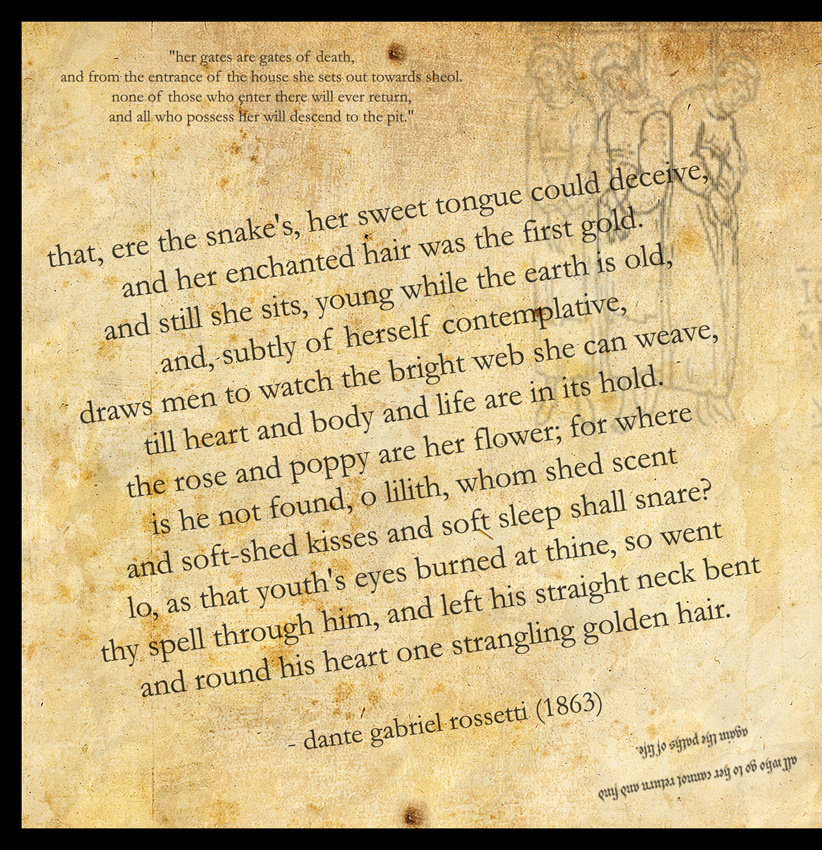 "her gates are gates of death,
and from the entrance of the house she sets out towards sheol.
none of those who enter there will ever return,
and all who possess her will descend to the pit."
that, ere the snake's, her sweet tongue could deceive,
and her enchanted hair was the first gold.
and still she sits, young while the earth is old,
and, subtly of herself contemplative,
draws men to watch the bright web she can weave,
till heart and body and life are in its hold.
the rose and poppy are her flower; for where
is he not found, o lilith, whom shed scent
and soft-shed kisses and soft sleep shall snare?
lo, as that youth's eyes burned at thine, so went
thy spell through him, and left his straight neck bent
and round his heart one strangling golden hair.
- dante gabriel rossetti (1863)
all who go to her cannot return and find
again the paths of life.